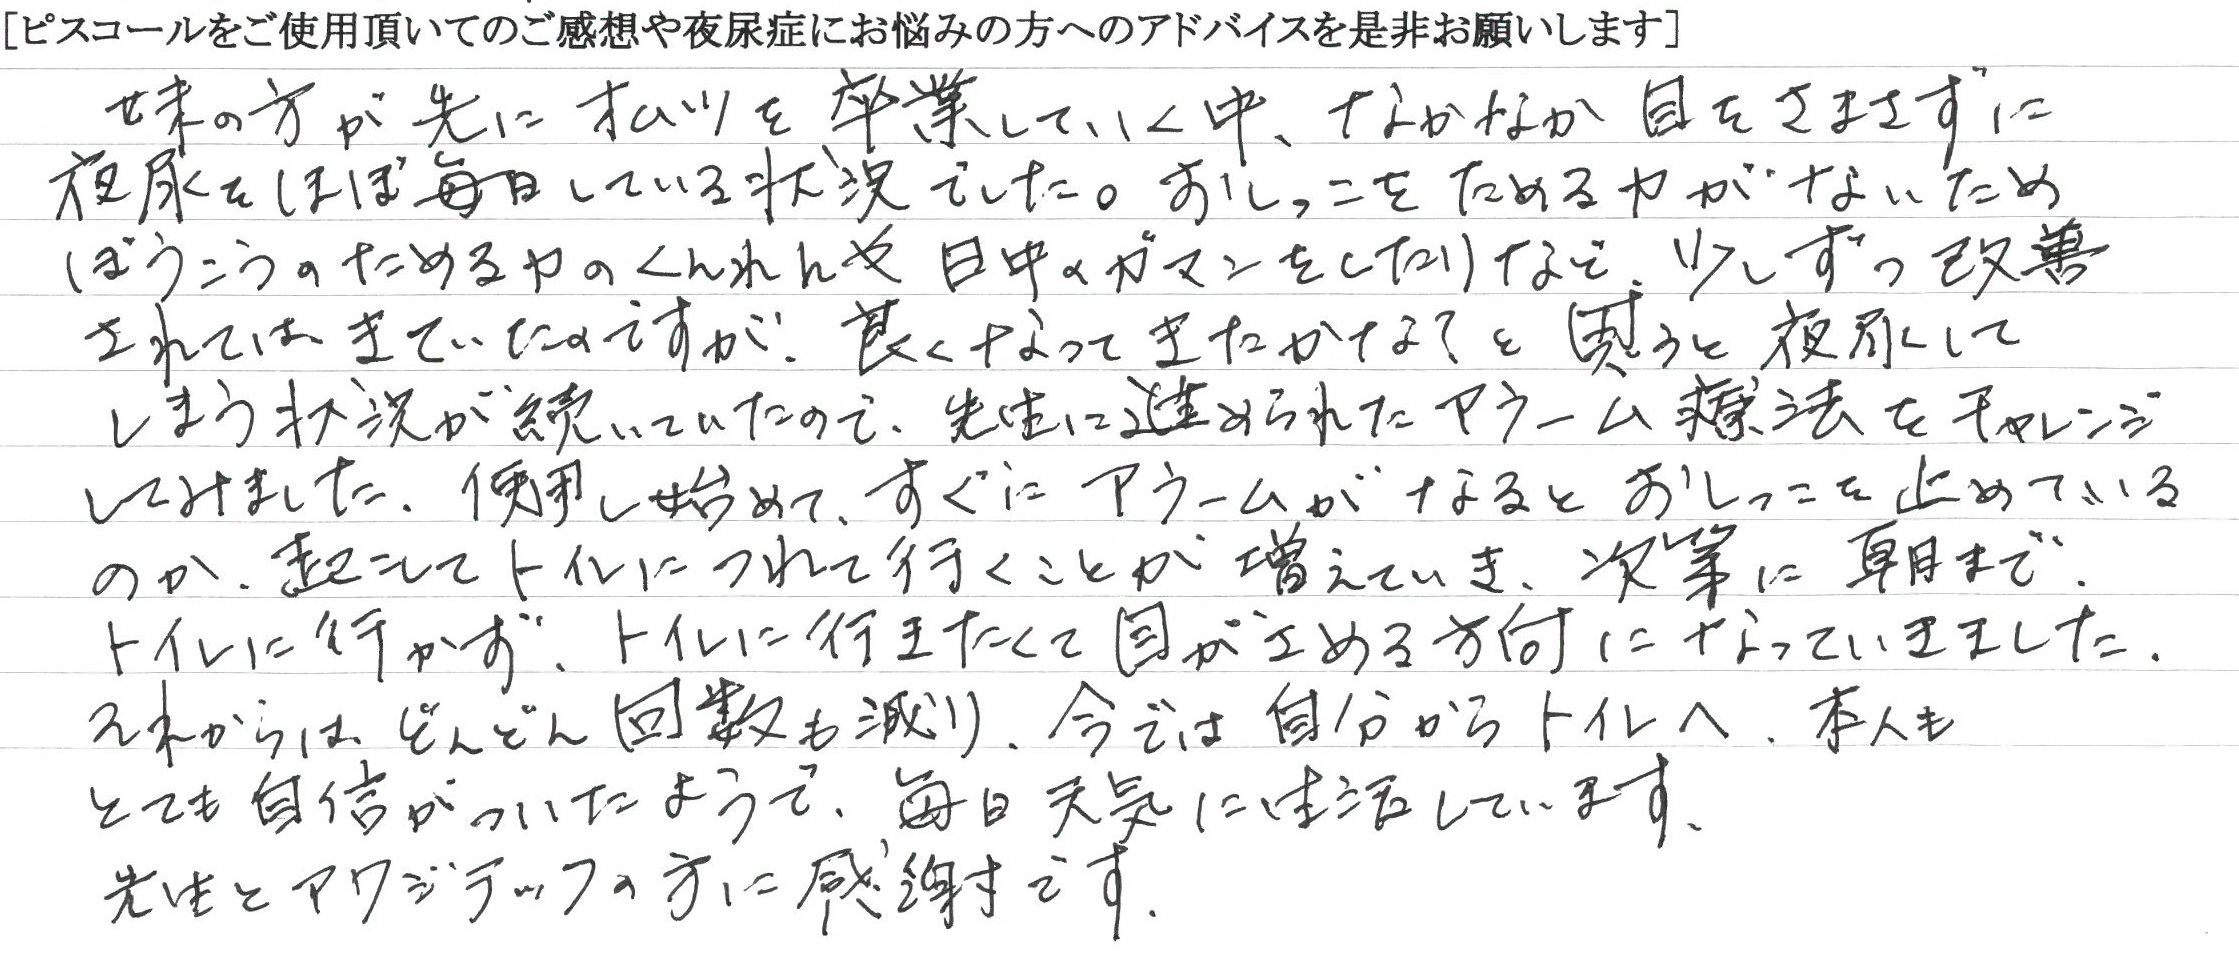 [ピスコールをご使用頂いてのご感想や夜尿症にお悩みの方へのアドバイスを是非お願いします]
妹の方が先にオムツを卒業していく中、なかなか目をさまさずに
夜尿をほぼ毎日している状況でした。おしっこをためる力がないため
ぼうこうのためる力のくんれんや日中のガマンをしたりなど、少しずつ改善
されてはきていたのですが、良くなってきたかな？と思うと夜尿して
しまう状況が続いていたので、先生に進められたアラーム療法をチャレンジ
してみました。使用し始めて、すぐにアラームがなるとおしっこを止めている
のか、起こしてトイレにつれて行くことが増えていき、次第に朝まで、
トイレに行かず、トイレに行きたくて目がさめる方向になっていきました。
それからは、どんどん回数も減り、今では自分からトイレへ、本人も
とても自信がついたようで、毎日天気に生活しています。
先生とアワジテックの方に感謝です。